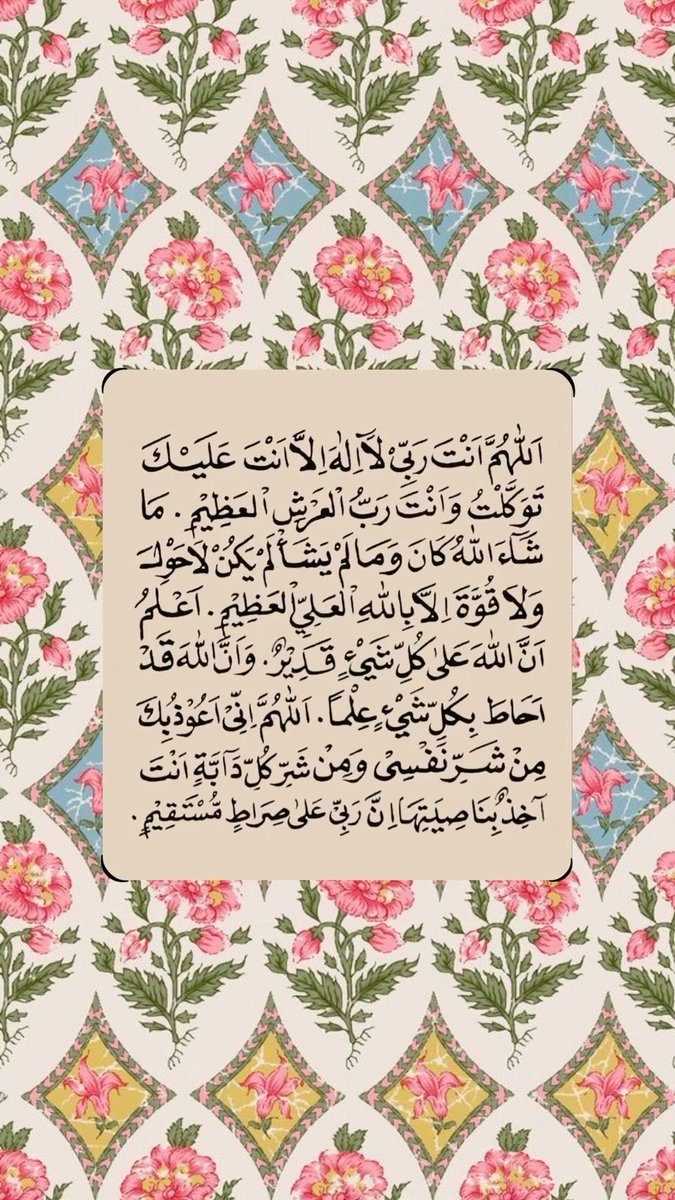 اَللّٰهُمَّ اَنْتَ رَبِّيْ لَآ اِلٰهَ اِلَّا اَنْتَ عَلَيْكَ
تَوَكَّلْتُ وَاَنْتَ رَبُّ الْعَرْشِ الْعَظِيْمِ. مَا
شَآءَ اللّٰهُ كَانَ وَمَا لَمْ يَشَأْ لَمْ يَكُنْ لَاحَوْلَ
وَلَا قُوَّةَ اِلَّا بِاللّٰهِ الْعَلِيِّ الْعَظِيْمِ. اَعْلَمُ
اَنَّ اللّٰهَ عَلٰى كُلِّ شَيْءٍ قَدِيْرٌ. وَاَنَّ اللّٰهَ قَدْ
اَحَاطَ بِكُلِّ شَيْءٍ عِلْمًا. اَللّٰهُمَّ اِنِّيْ اَعُوْذُ بِكَ
مِنْ شَرِّ نَفْسِيْ وَمِنْ شَرِّ كُلِّ دَآبَّةٍ اَنْتَ
آخِذٌ بِنَاصِيَتِهَا اِنَّ رَبِّيْ عَلٰى صِرَاطٍ مُّسْتَقِيْمٍ.